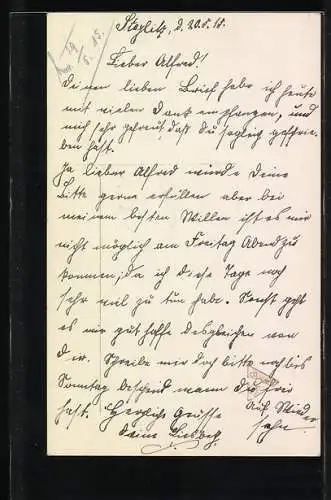 Steglitz, d. 20.5.15.
Lieber Alfred!
deinen lieben Brief habe ich heute
mit vielen Dank empfangen, und
mich sehr gefreut, daß du sogleich geschrie-
ben hast.
Ja lieber Alfred würde deine
Bitte gerne erfüllen aber bei
meinem besten Willen ist es mir
nicht möglich am Freitag Abend zu
kommen, da ich diese Tage noch
sehr viel zu tun habe. Sonst geht
es mir gut hoffe desgleichen von
dir. Schreibe mir doch bitte noch bis
Sonntag bescheid wann du frei
hast. Herzliche Grüsse Auf Wieder
sehn
deine